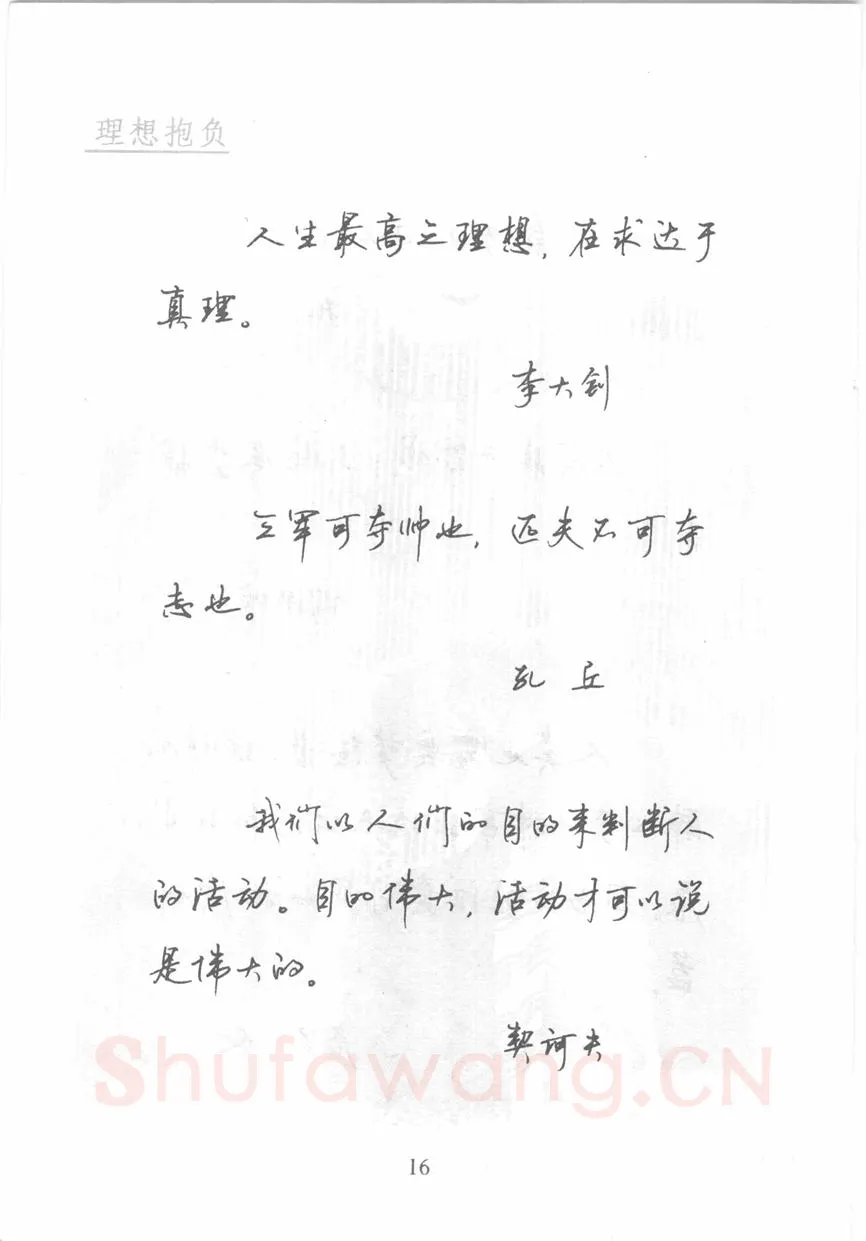 理想抱负
人生最高之理想，在求达于
真理。
李大钊
三军可夺帅也，匹夫不可夺
志也。
孔 丘
我们以人们的目的来判断人
的活动。目的伟大，活动才可以说
是伟大的。
契诃夫
Shufawang.CN
16